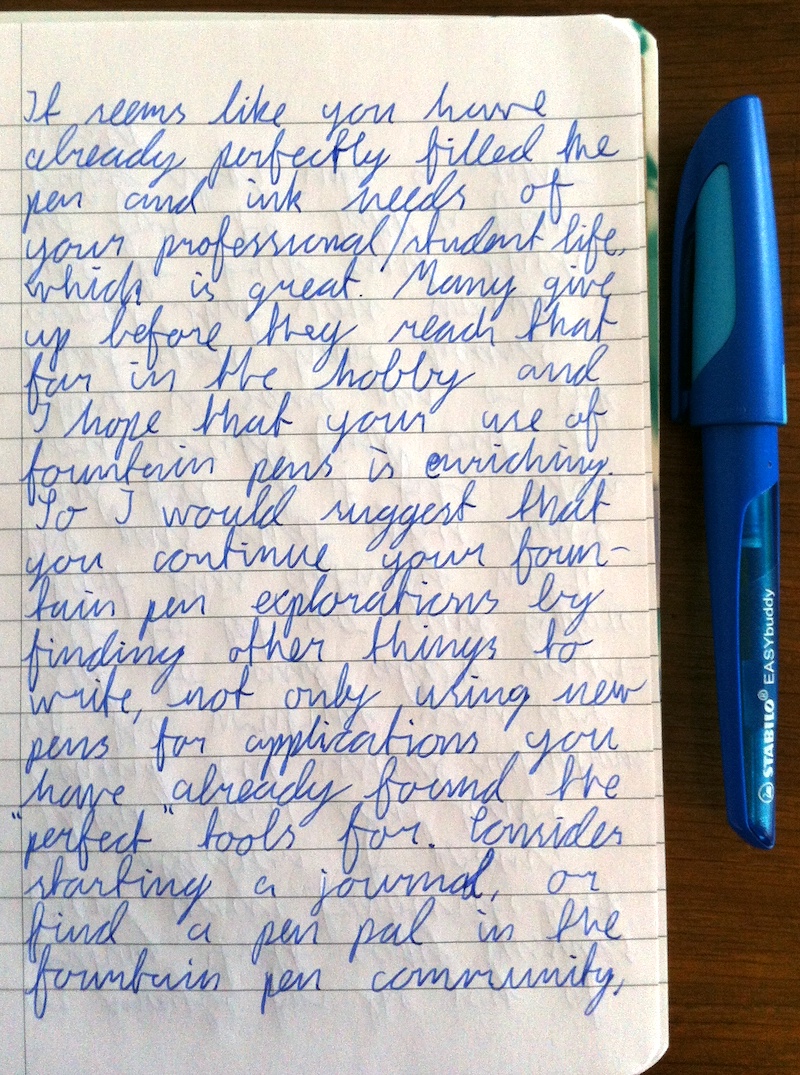 It seems like you have
already perfectly filled the
pen and ink needs of
your professional/student life,
which is great. Many give
up before they reach that
far in the hobby and
I hope that your use of
fountain pens is enriching.
So I would suggest that
you continue your foun-
tain pen explorations by
finding other things to
write, not only using new
pens for applications you
have already found the
"perfect" tools for. Consider
starting a journal, or
find a pen pal in the
fountain pen community,
STABILO® EASYbuddy